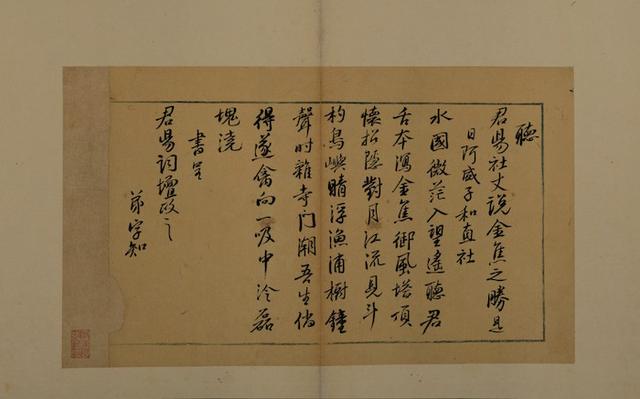 聽
君易社丈說金焦之勝是
日阿咸子和直社
水國微茫入望遙聽君
舌本瀉金焦御風塔頂
懷松隱對月江流見斗
杓島嶼晴浮漁浦樹鐘
聲時雜寺門潮吾生倘
得遂禽向一吸中泠磊
塊澆
書呈
君易詞壇政之
弟字知